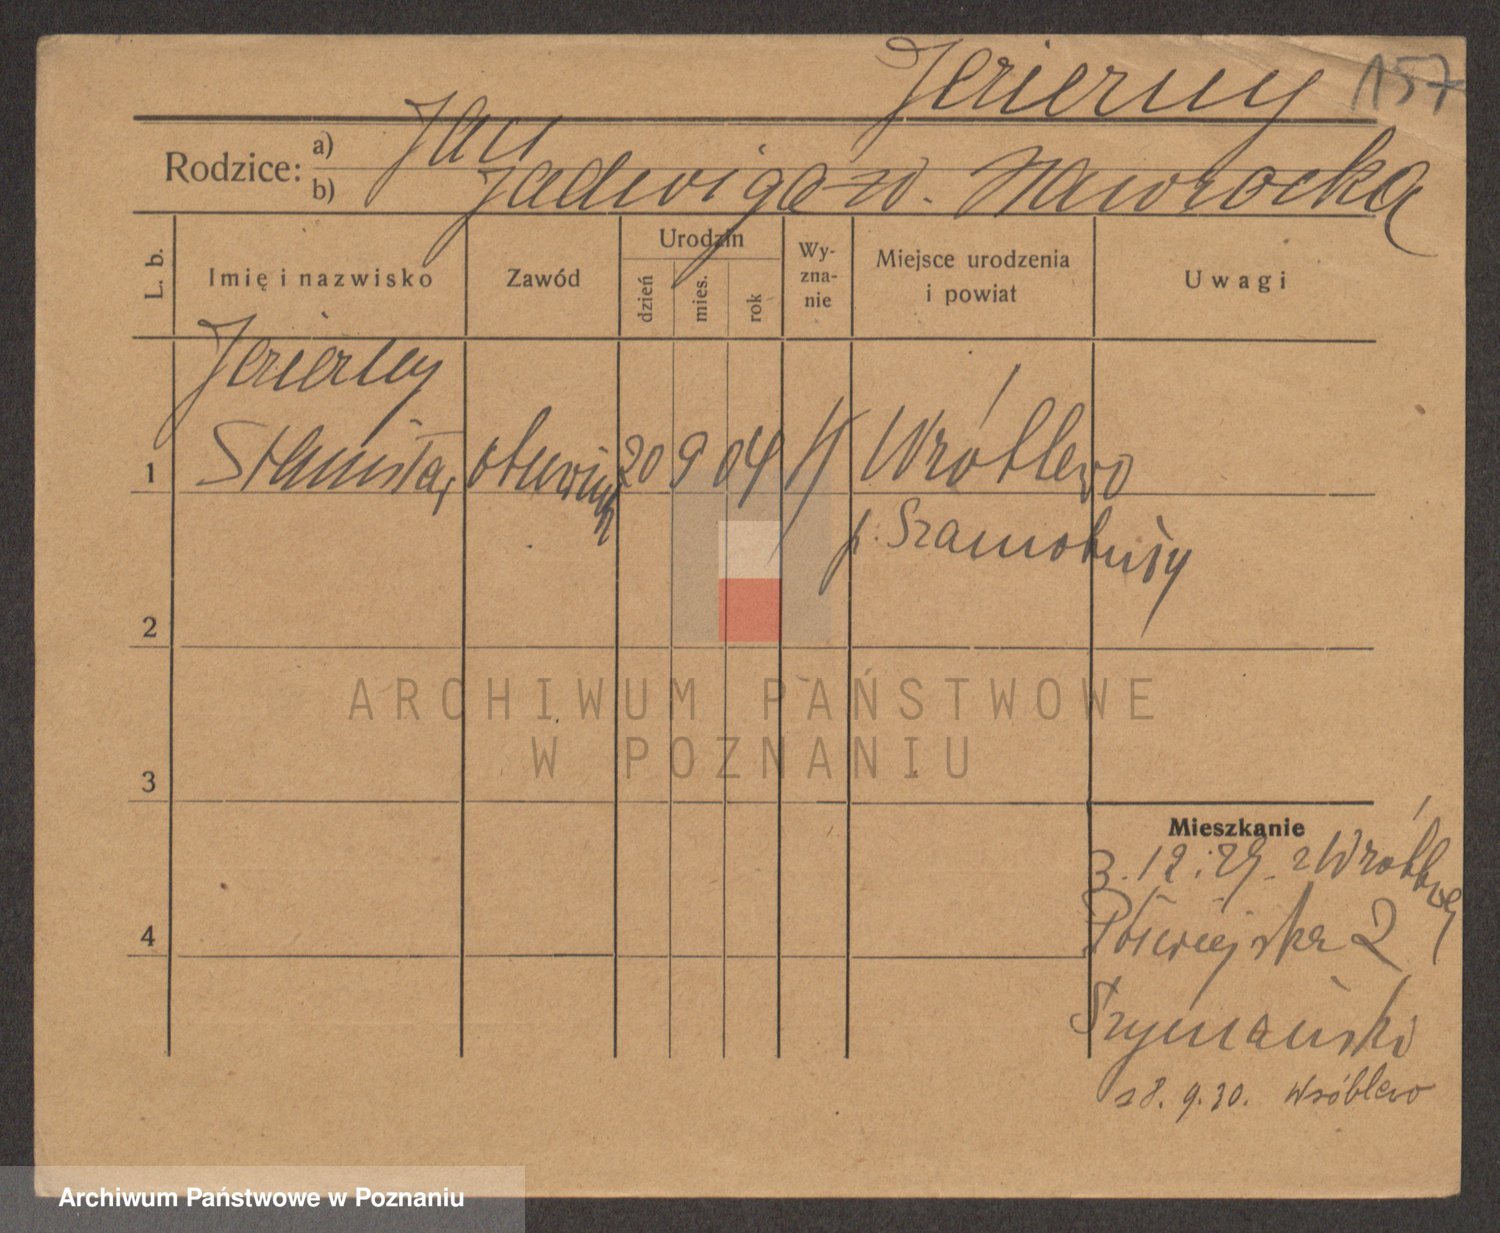 Jezierny 157
Rodzice: a) Jan
b) Jadwiga zd. Nawrocka
L. b.
Imię i nazwisko
Zawód
Urodzin
dzień
mies.
rok
Wy-
zna-
nie
Miejsce urodzenia
i powiat
Uwagi
Jezierny
1 Stanisław 20 9 04 Wróblewo
p. Szamotuły
2
3
4
Mieszkanie
3.12.29. z Wróblewo
Półwiejska 2
Szymański
18.9.30. Wróblewo
ARCHIWUM PAŃSTWOWE
W POZNANIU
Archiwum Państwowe w Poznaniu